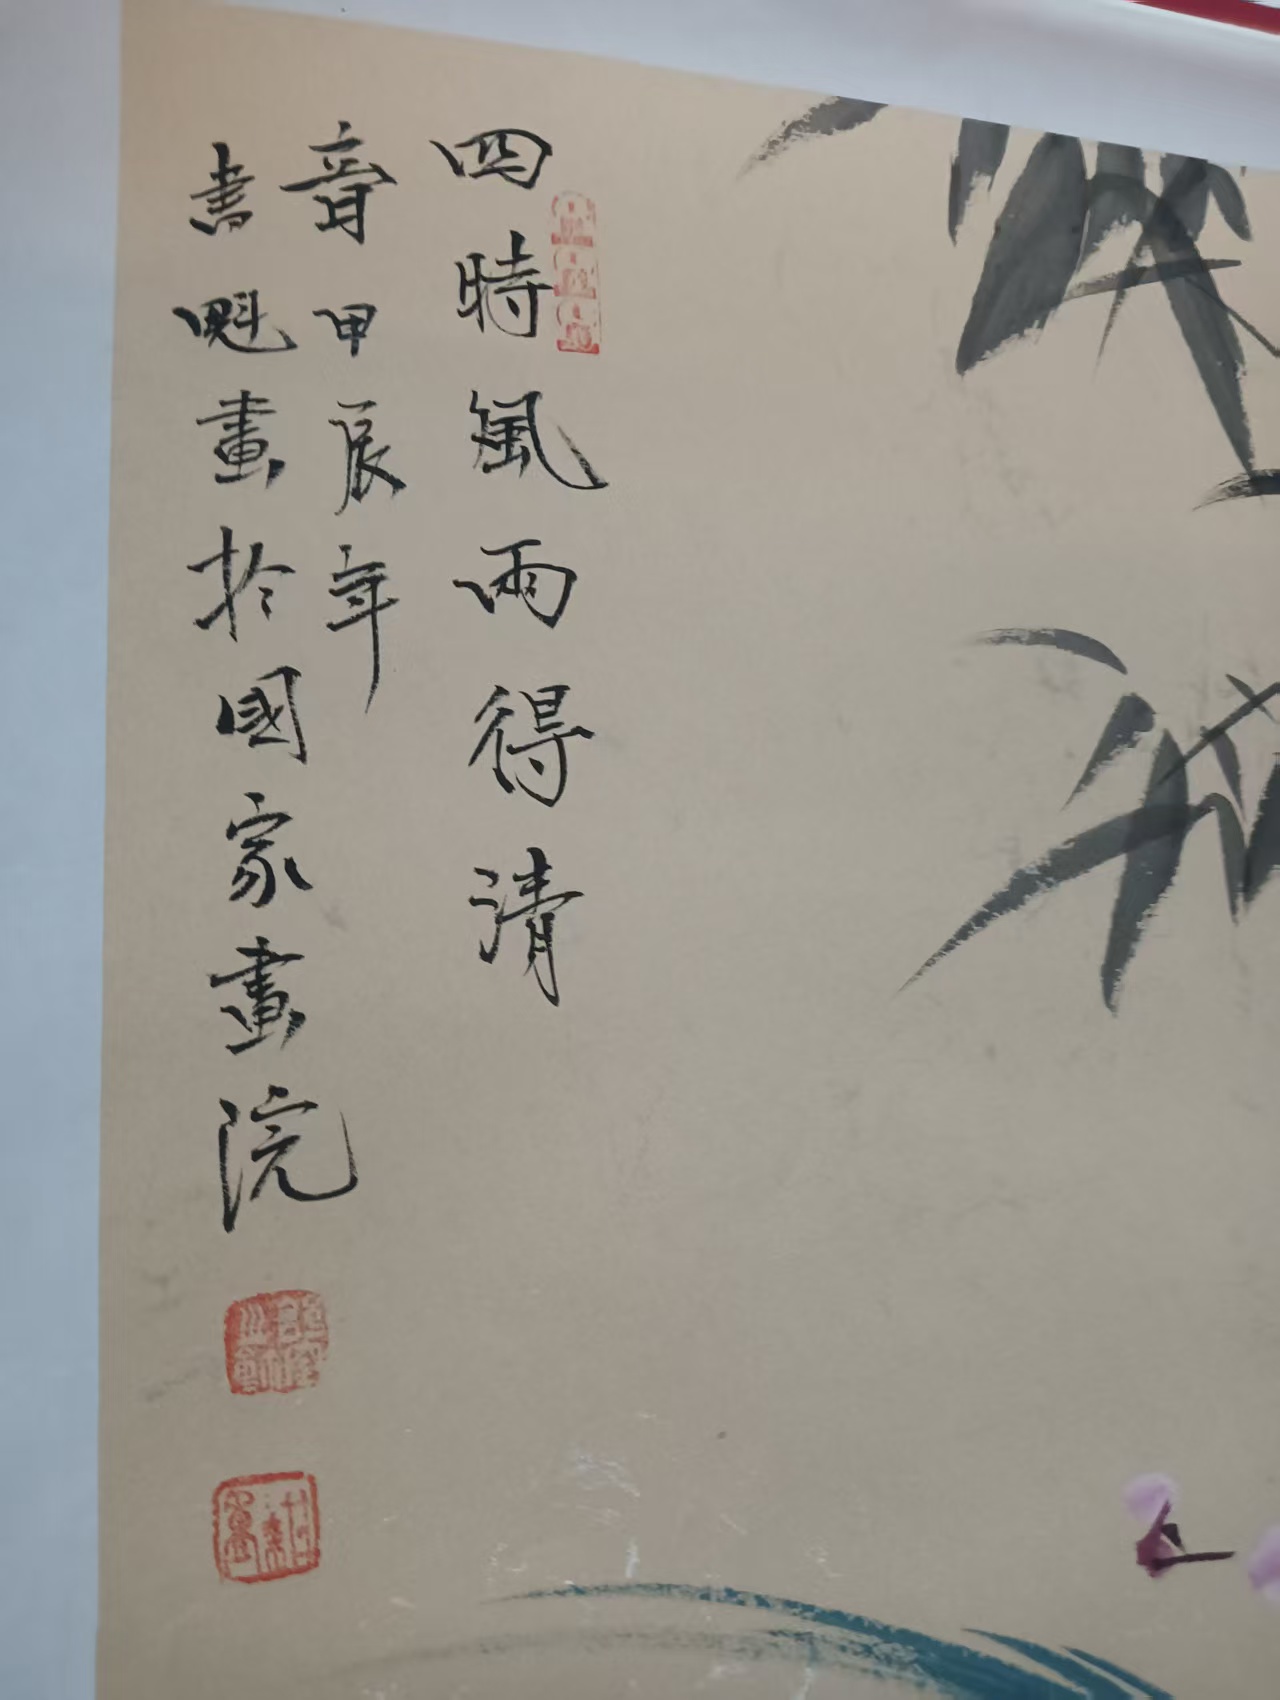 四時風雨得清
音甲辰年
書魁畫於國家畫院